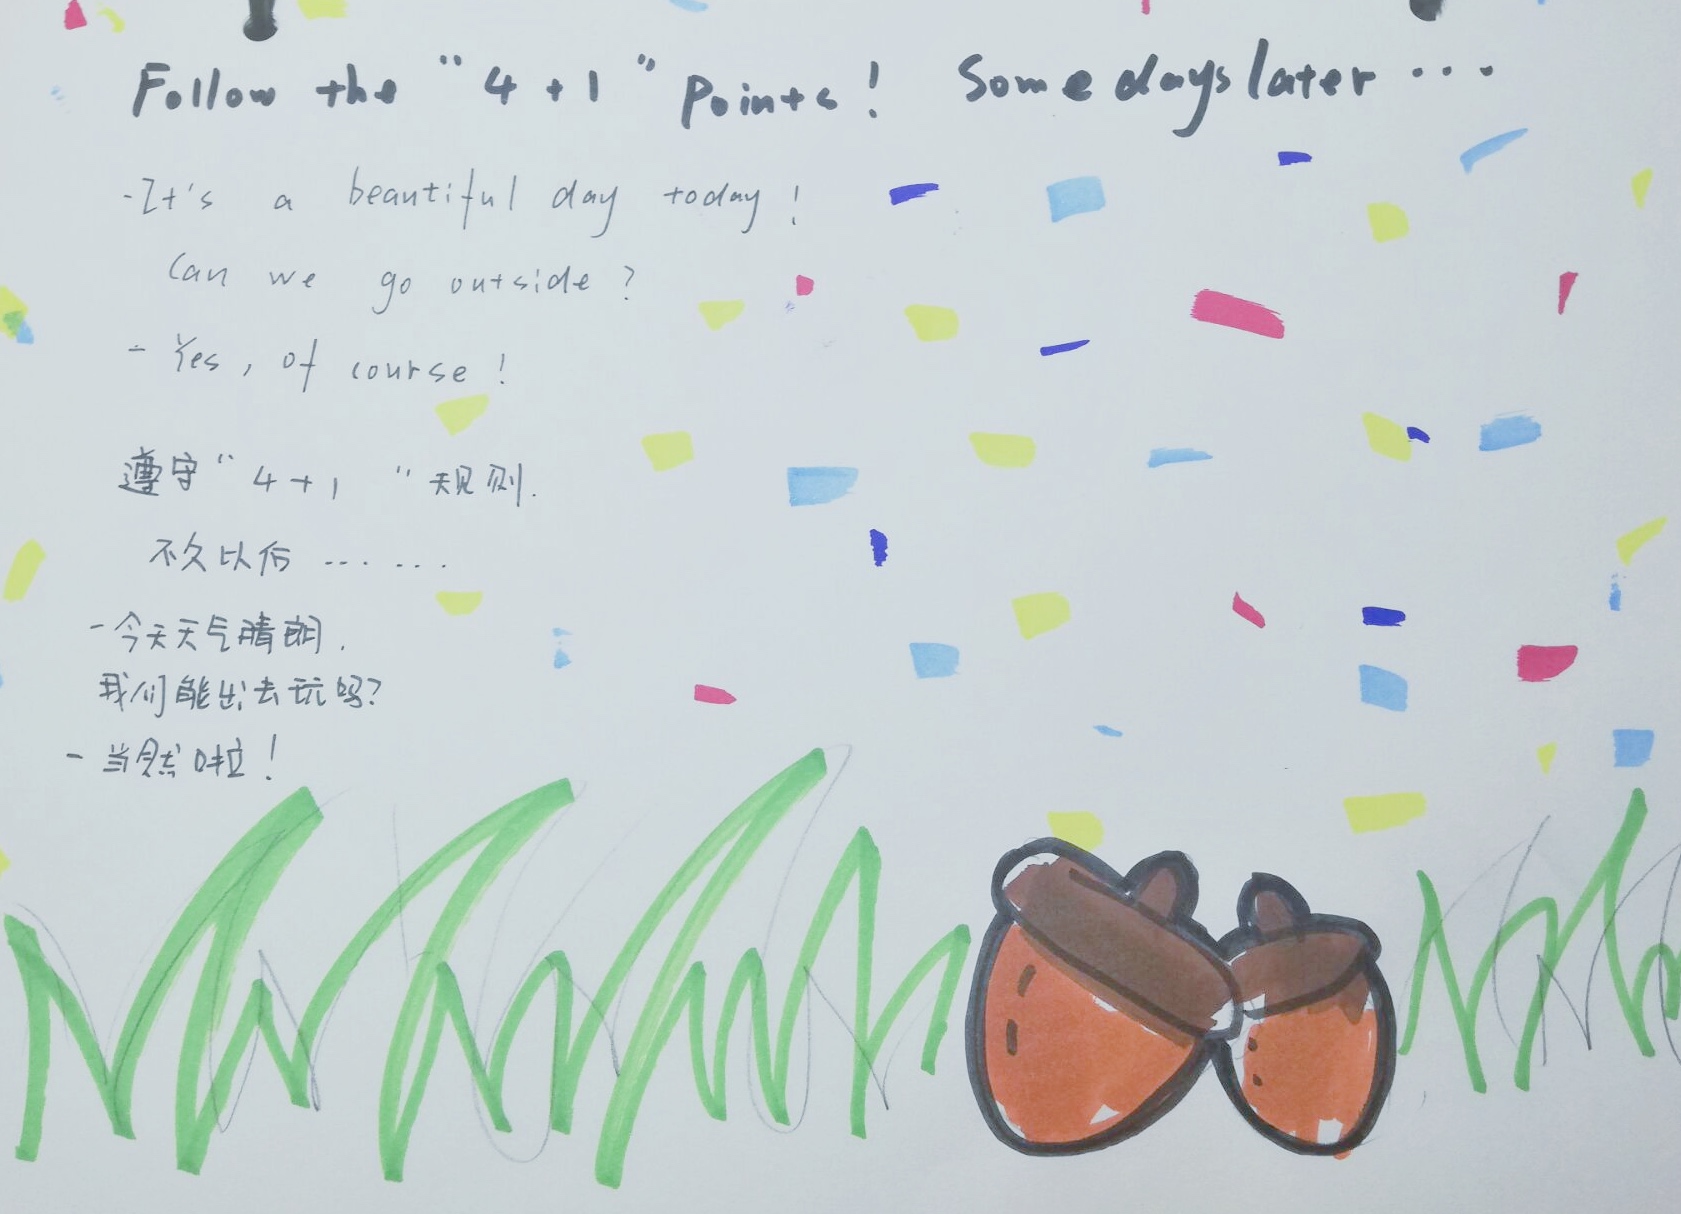 Follow the “4+1” Points! Some days later...
-It's a beautiful day today!
Can we go outside?
- Yes, of course!
遵守“4+1”规则.
不久以后……
-今天天气晴朗.
我们能出去玩吗?
-当然啦!